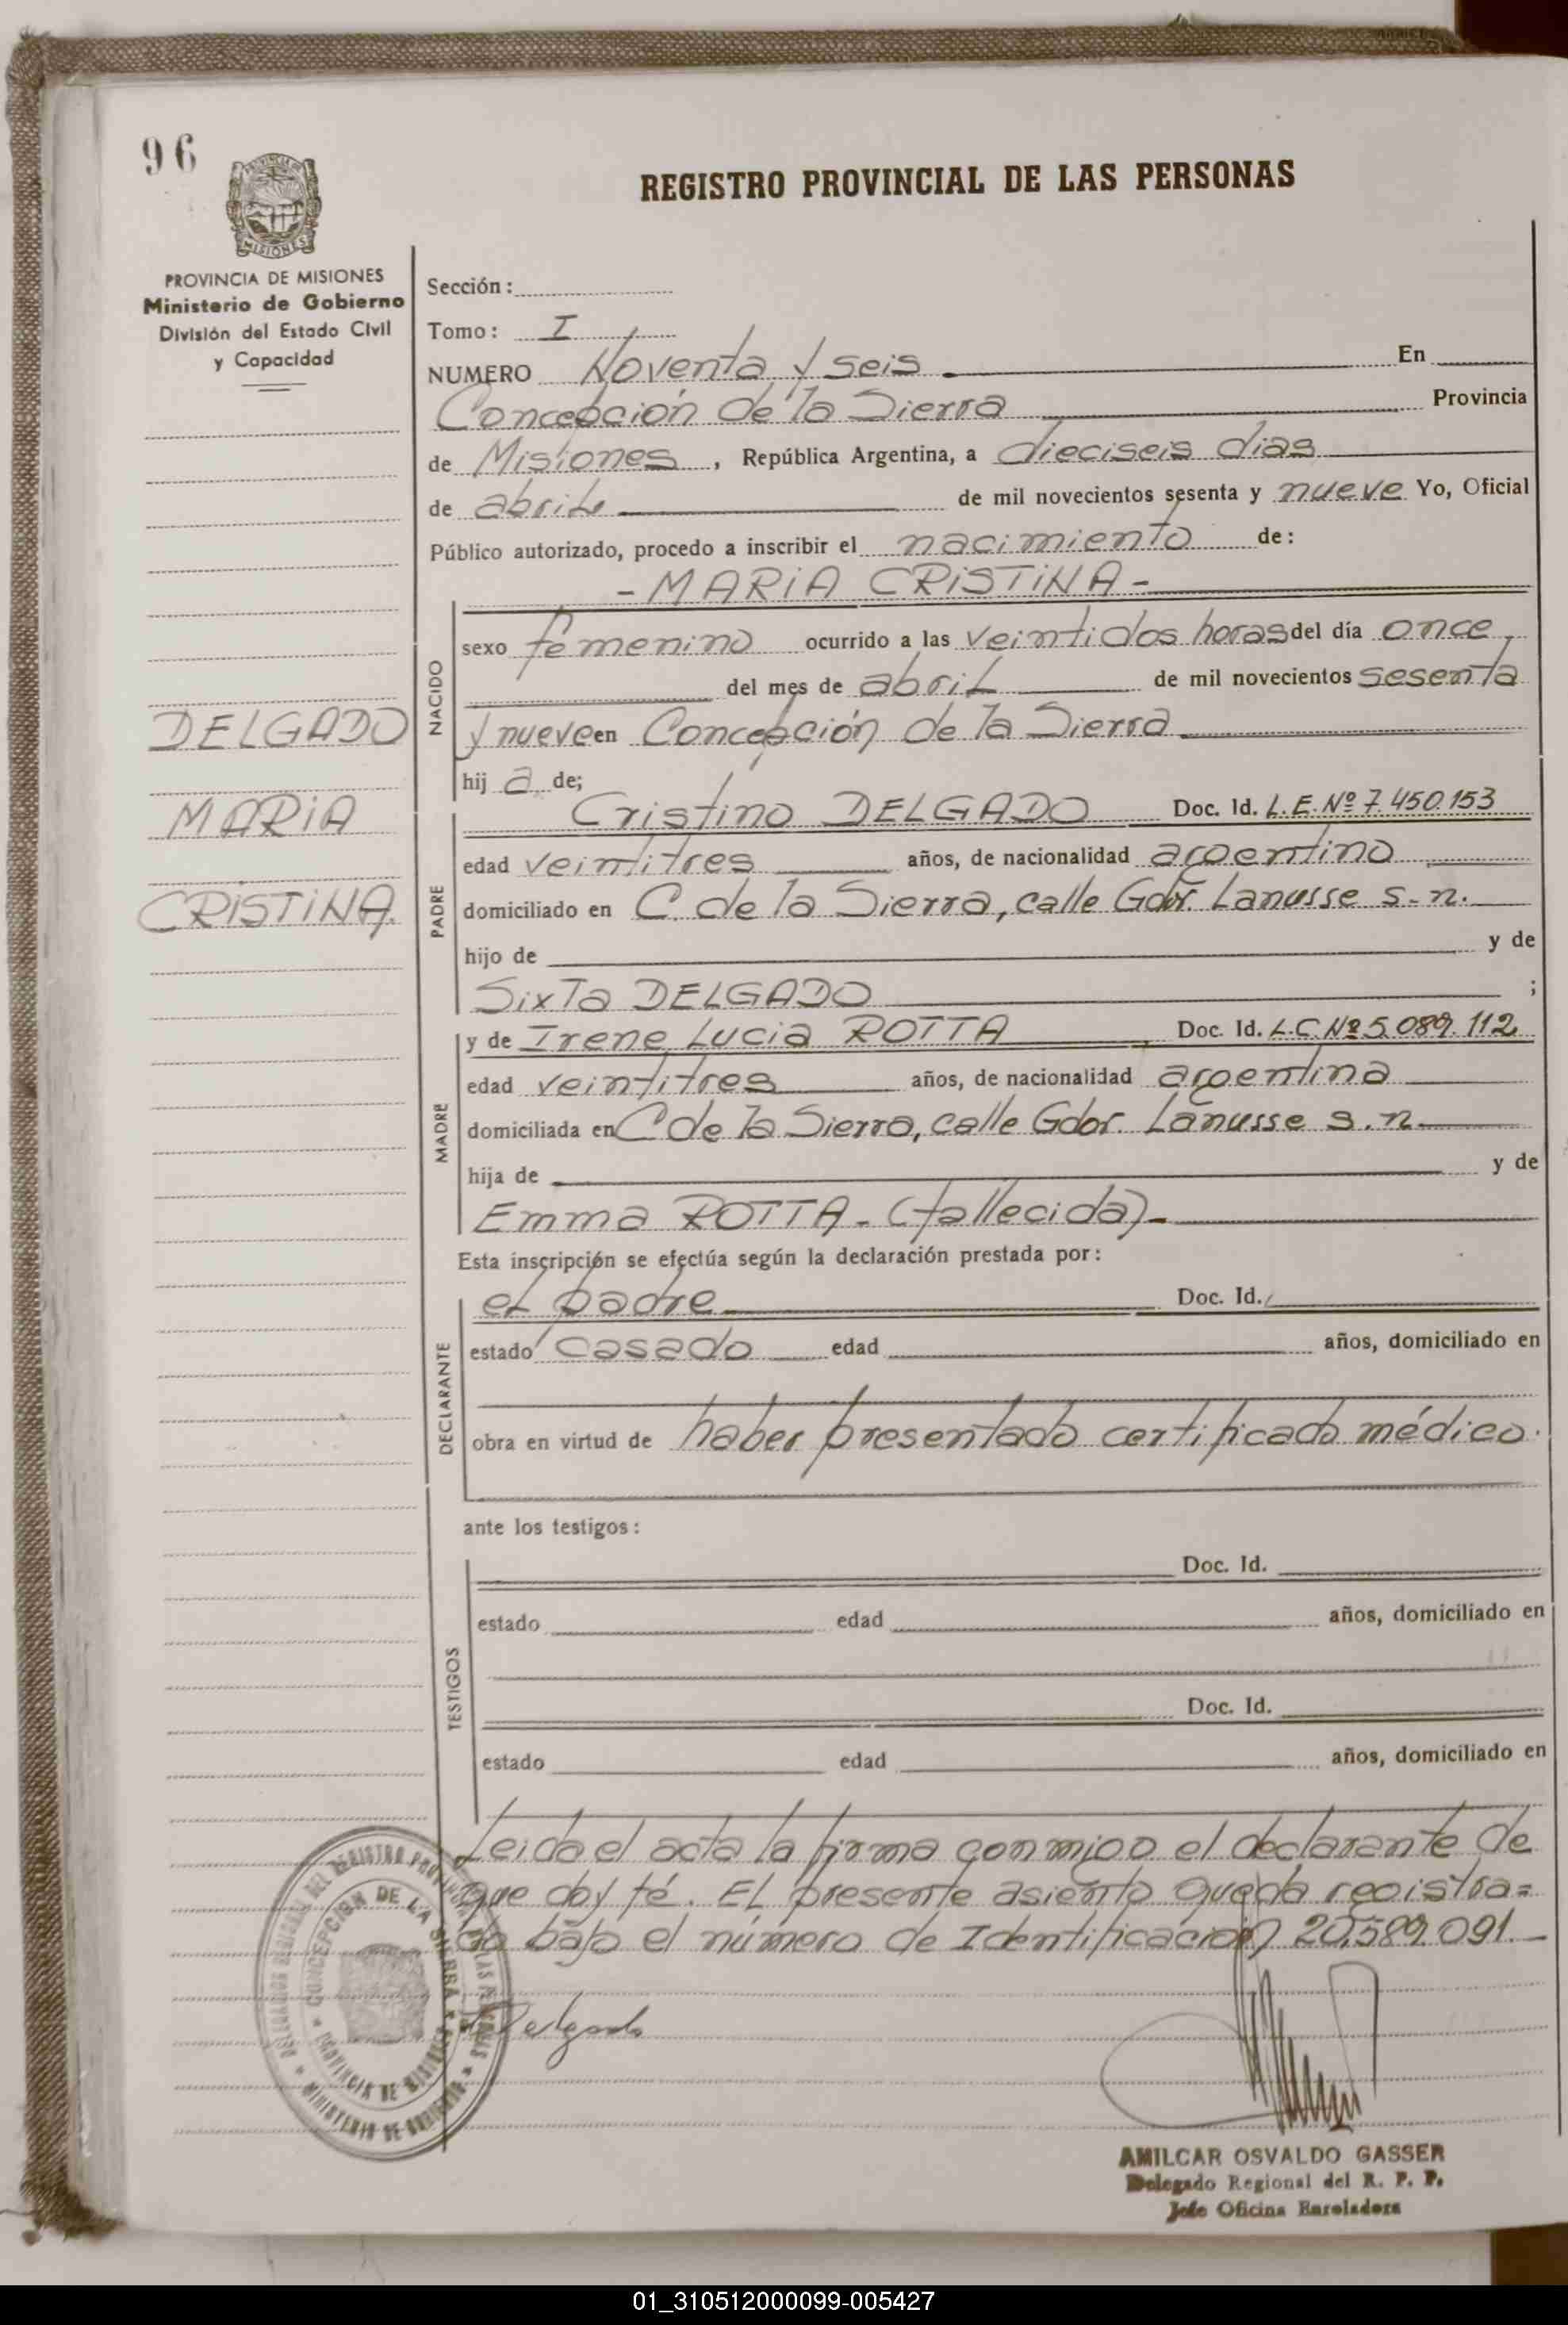 96
REGISTRO PROVINCIAL DE LAS PERSONAS
PROVINCIA DE MISIONES
Ministerio de Gobierno
División del Estado Civil
y Capacidad
DELGADO
MARIA
CRISTINA.
Sección:
Tomo: I
NUMERO Noventa y seis En
Concepción de la Sierra Provincia
de Misiones, República Argentina, a dieciseis dias
de abril de mil novecientos sesenta y nueve Yo, Oficial
Público autorizado, procedo a inscribir el nacimiento de:
- MARIA CRISTINA -
NACIDO
sexo femenino ocurrido a las veintidos horas del día once,
del mes de abril de mil novecientos sesenta
y nueve en Concepción de la Sierra
hij a de;
PADRE
Cristino DELGADO Doc. Id. L.E. Nº 7.450.153
edad veintitres años, de nacionalidad argentino
domiciliado en C. de la Sierra, calle Gdor. Lanusse s-n.
hijo de y de
Sixta DELGADO ;
MADRE
y de Irene Lucia ROTTA Doc. Id. L.C. Nº 5.089.112
edad veintitres años, de nacionalidad argentina
domiciliada en C de la Sierra, calle Gdor. Lanusse s.n.
hija de y de
Emma ROTTA - (fallecida) -
Esta inscripción se efectúa según la declaración prestada por:
DECLARANTE
el padre Doc. Id.
estado casado edad años, domiciliado en
obra en virtud de haber presentado certificado médico.
ante los testigos:
TESTIGOS
Doc. Id.
estado edad años, domiciliado en
Doc. Id.
estado edad años, domiciliado en
Leida el acta la firma conmigo el declarante de
que doy fé. El presente asiento queda registra=
do bajo el número de Identificación 20.589.091.
Delgado
CONCEPCION DE LA SIERRA
PROVINCIA DE MISIONES
MINISTERIO DE GOBIERNO
AMILCAR OSVALDO GASSER
Delegado Regional del R. P. P.
Jefe Oficina Enroladora
01_310512000099-005427